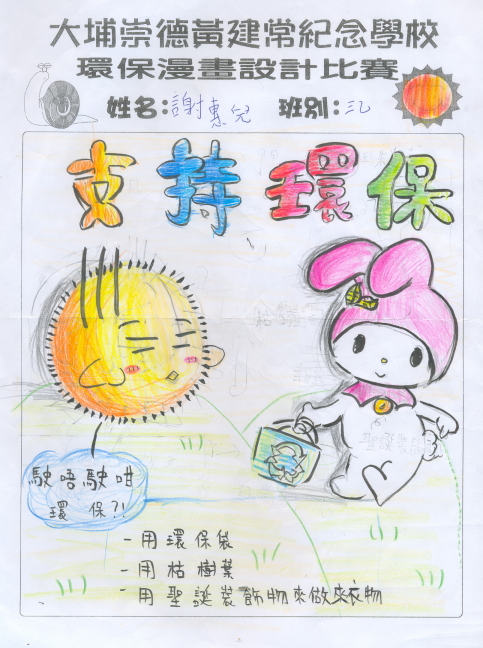 大埔崇德黃建常紀念學校
環保漫畫設計比賽
姓名:謝惠兒 班別:三乙
支持環保
駛唔駛咁
環保?!
-用環保袋
-用枯樹葉
-用聖誕裝飾物來做衣物